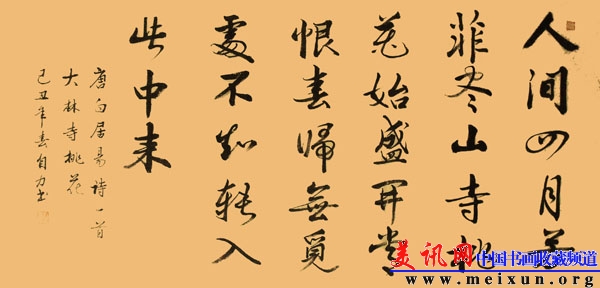 人间四月芳
菲尽山寺桃
花始盛开常
恨春歸無覓
處不知轉入
此中来
唐白居易诗一首
大林寺桃花
己丑年春自力书
美讯网
中国书画收藏频道
www.meixun.org